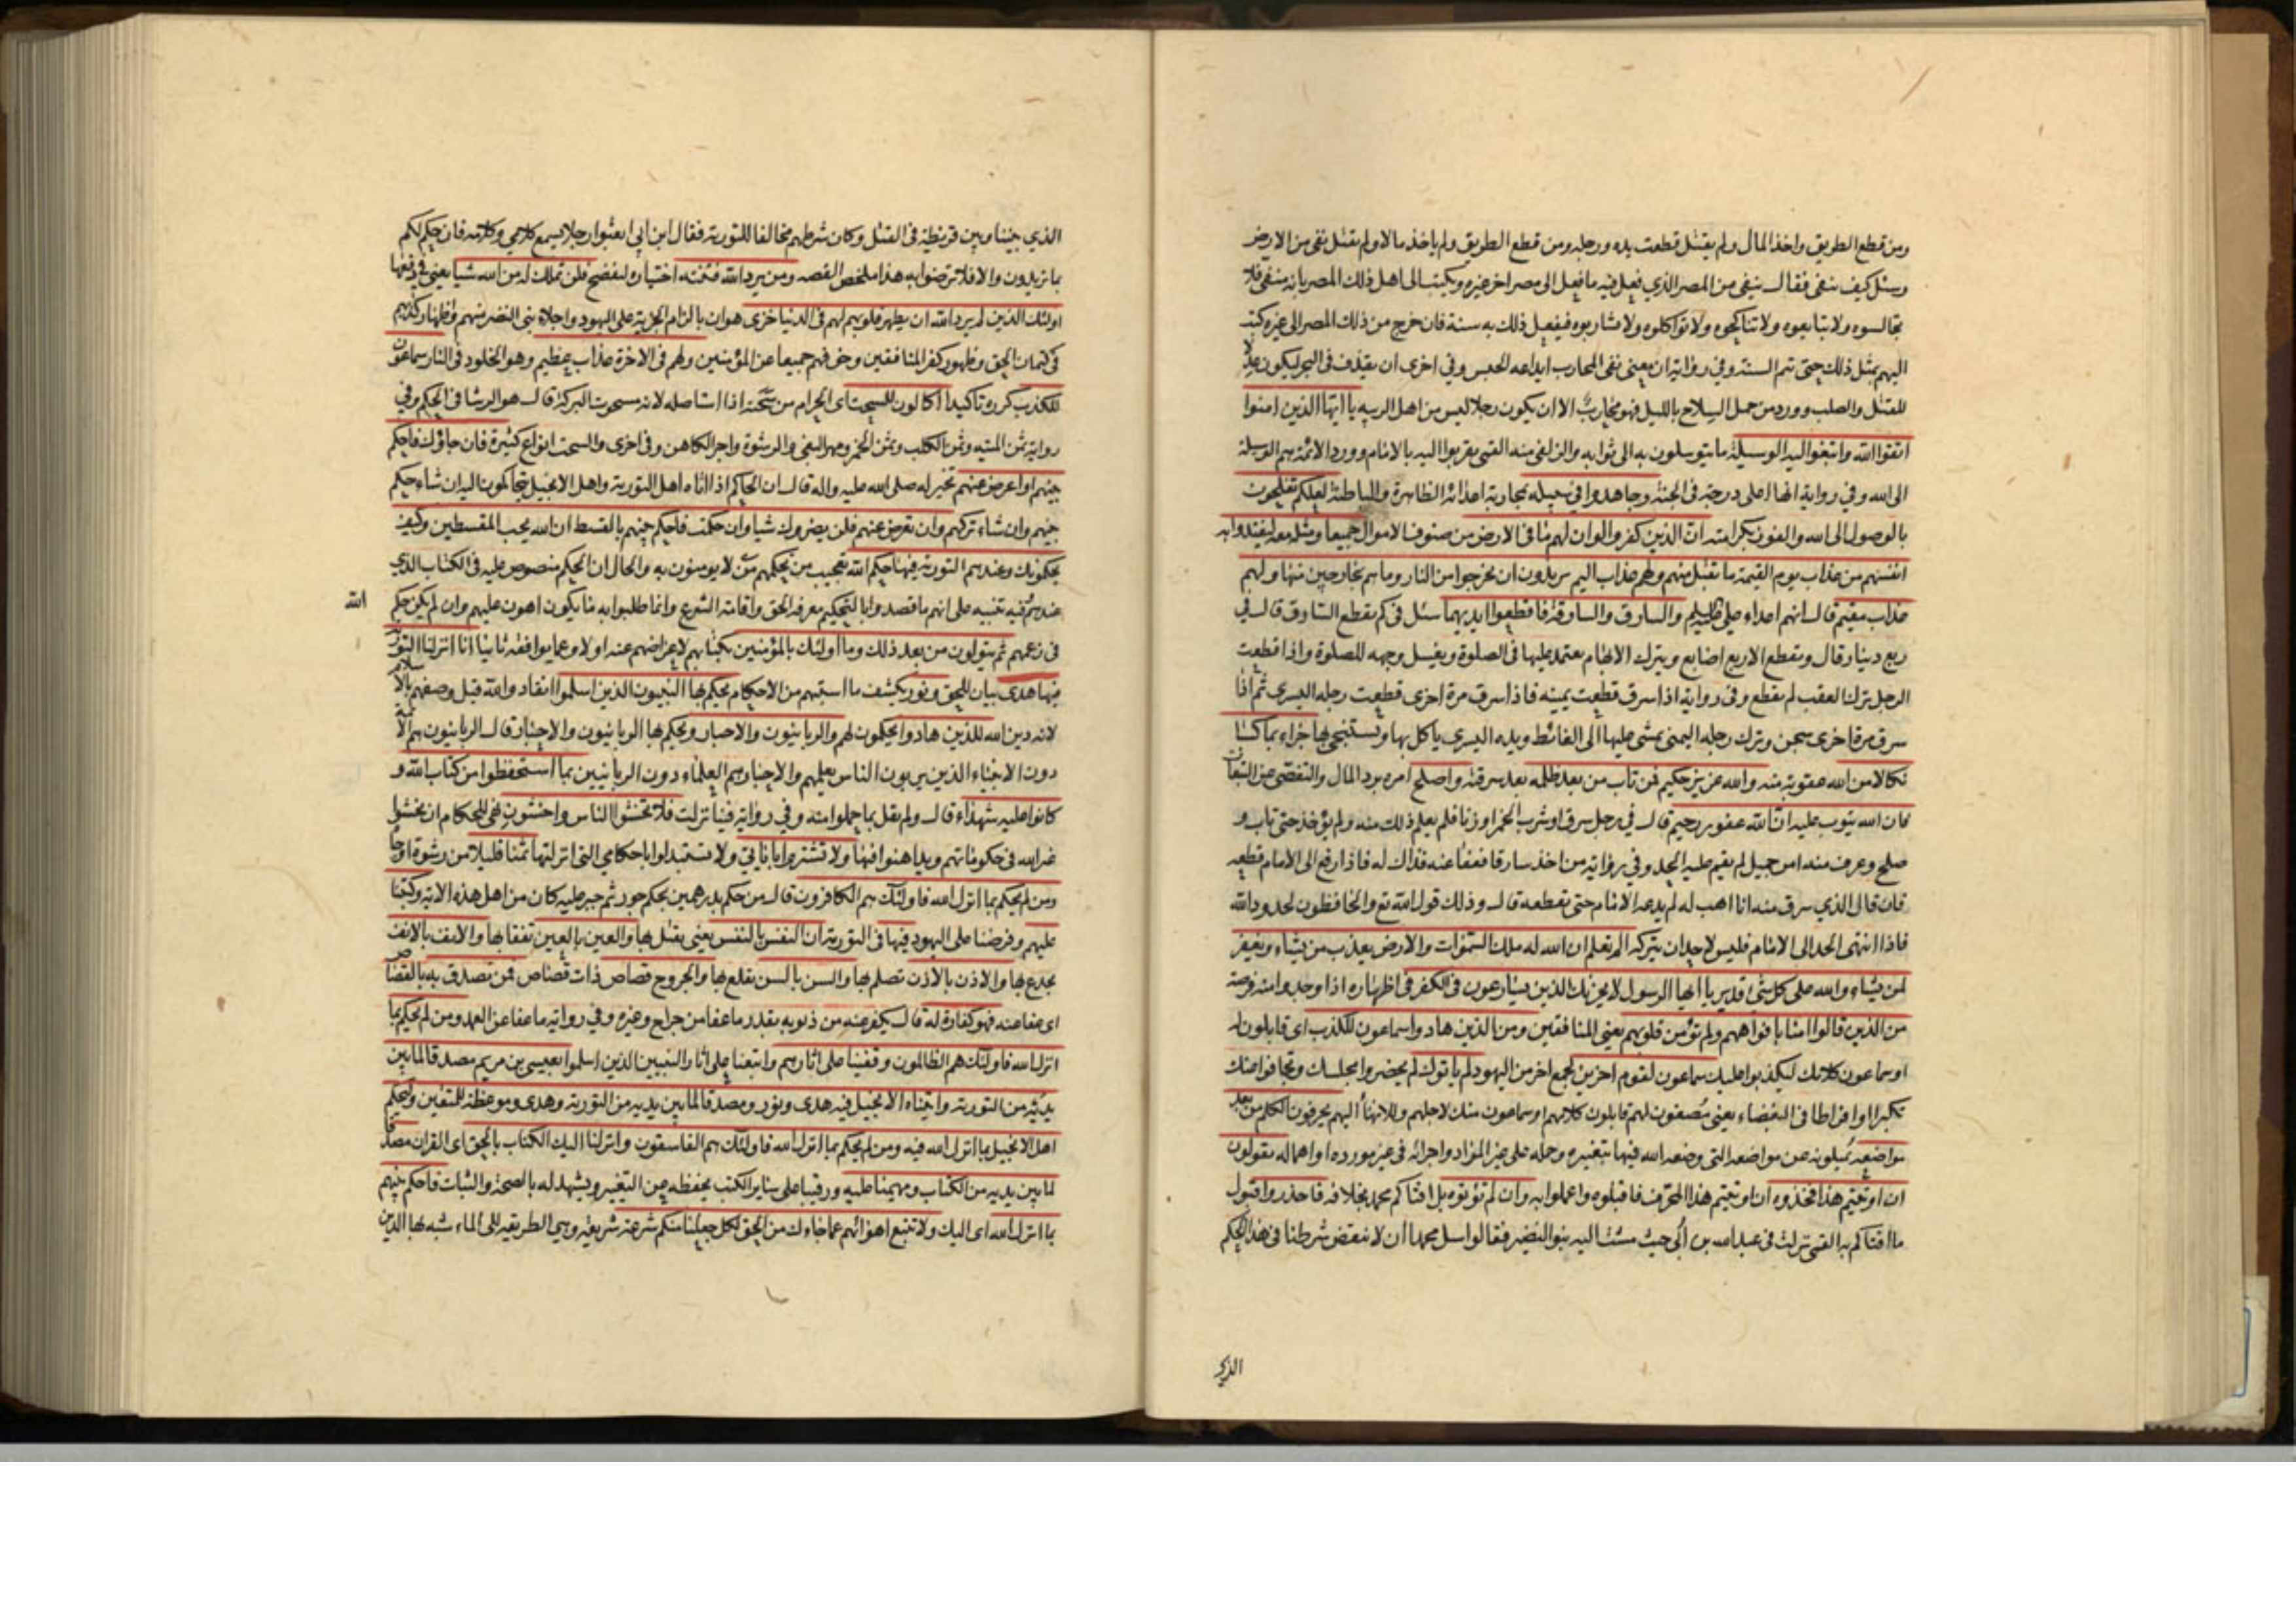 ومن قطع الطريق واخذ المال ولم يقتل قطعت يده ورجله ومن قطع الطريق ولم ياخذ مالا ولم يقتل نفى من الارض
وسئل كيف ينفى فقال ينفى من المصر الذي فعل فيه ما فعل الى مصر اخر غيره ويكتب الى اهل ذلك المصر بانه منفى فلا
تجالسوه ولا تبايعوه ولا تناكحوه ولا تواكلوه ولا تشاربوه فيفعل ذلك به سنة فان خرج من ذلك المصر الى غيره كتب
اليهم بمثل ذلك حتى تتم السنة وفي رواية ان معنى نفى المحارب ايداعه الحبس وفي اخرى ان يقذف في البحر ليكون عدلا
للقتل والصلب وورد من حمل السلاح بالليل فهو محارب الا ان يكون رجلا ليس من اهل الريبه يا ايها الذين امنوا
اتقوا الله وابتغوا اليه الوسيلة ما يتوسلون به الى ثوابه والزلفى منه القمي تقربوا اليه بالامام وورد الائمة هم الوسيلة
الى الله وفي رواية انها اعلى درجة في الجنة وجاهدوا في سبيله بمحاربة اعدائه الظاهرة والباطنة لعلكم تفلحون
بالوصول الى الله والفوز بكرامته ان الذين كفروا لو ان لهم ما في الارض من صنوف الاموال جميعا ومثله معه ليفتدوا به
انفسهم من عذاب يوم القيمة ما تقبل منهم ولهم عذاب اليم يريدون ان يخرجوا من النار وما هم بخارجين منها ولهم
عذاب مقيم قال انهم اعداء علي والسارق والسارقة فاقطعوا ايديهما سئل في كم يقطع السارق قال في
ربع دينار وقال وتقطع الاربع اصابع ويترك الابهام يعتمد عليها في الصلوة ويغسل وجهه للصلوة واذا قطعت
الرجل ترك العقب لم يقطع وفي رواية اذا سرق قطعت يمينه فاذا سرق مرة اخرى قطعت رجله اليسرى ثم اذا
سرق مرة اخرى سجن وترك رجله اليمنى يمشى عليها الى الغائط ويده اليسرى ياكل بها ويستنجي بها جزاء بما كسبا
نكالا من الله عقوبة منه والله عزيز حكيم فمن تاب من بعد ظلمه بعد سرقته واصلح امره برد المال والتفصى عن التبعات
فان الله يتوب عليه ان الله غفور رحيم قال في رجل سرق او شرب الخمر او زنا فلم يعلم ذلك منه ولم يؤخذ حتى تاب و
صلح وعرف منه امر جميل لم يقم عليه الحد وفي رواية من اخذ سارقا فعفا عنه فذاك له فاذا رفع الى الامام قطعه
فان قال الذي سرق منه انا اهب له لم يدعه الامام حتى يقطعه قال وذلك قول الله تع والحافظون لحدود الله
فاذا انتهى الحد الى الامام فليس لاحد ان يتركه الم تعلم ان الله له ملك السموات والارض يعذب من يشاء ويغفر
لمن يشاء والله على كل شئ قدير يا ايها الرسول لا يحزنك الذين يسارعون في الكفر في اظهاره اذا وجدوا منه فرصة
من الذين قالوا امنا بافواههم ولم تؤمن قلوبهم يعني المنافقين ومن الذين هادوا سماعون للكذب اي قابلون له
او سماعون كلامك ليكذبوا عليك سماعون لقوم اخرين لجمع اخر من اليهود لم ياتوك لم يحضروا مجلسك وتجافوا عنك
تكبرا او افراطا في البغضاء يعني مصغون لهم قابلون كلامهم او سماعون منك لاجلهم وللانهاء اليهم يحرفون الكلم من بعد
مواضعه يميلونه عن مواضعه التي وضعه الله فيها بتغييره وحمله على غير المراد واجرائه في غير مورده او اهماله يقولون
ان اوتيتم هذا فخذوه ان اوتيتم هذا المحرف فاقبلوه واعملوا به وان لم تؤتوه بل افتاكم محمد بخلافه فاحذروا قبول
ما افتاكم به القمي نزلت في عبد الله بن ابي حيث مشت اليه بنو النضير فقالوا سل محمدا ان لا ينقض شرطنا في هذا الحكم
الذي
الذي بيننا وبين قريظة في القتل وكان شرطهم مخالفا للتورية فقال ابن ابي ابعثوا رجلا يسمع كلامي وكلامه فان حكم لكم
بما تريدون والا فلا ترضوا به هذا ملخص القصه ومن يرد الله فتنته اختياره ليفضح فلن تملك له من الله شيا يعني في دفعها
اولئك الذين لم يرد الله ان يطهر قلوبهم لهم في الدنيا خزى هوان بالزام الجزية على اليهود واجلاء بني النضير منهم واظهار كذبهم
في كتمان الحق وظهور كفر المنافقين وخوفهم جميعا عن المؤمنين ولهم في الاخرة عذاب عظيم وهو الخلود في النار سماعون
للكذب كرره تاكيدا اكالون للسحت اي الحرام من سحته اذا استاصله لانه مسحوت البركة قال هو الرشا في الحكم وفي
رواية ثمن الميتة وثمن الكلب وثمن الخمر ومهر البغي والرشوة واجر الكاهن وفي اخرى والسحت انواع كثيرة فان جاؤك فاحكم
بينهم او اعرض عنهم تخيير له صلى الله عليه واله قال ان الحاكم اذا اتاه اهل التورية واهل الانجيل يتحاكمون اليه ان شاء حكم
بينهم وان شاء تركهم وان تعرض عنهم فلن يضروك شيا وان حكمت فاحكم بينهم بالقسط ان الله يحب المقسطين وكيف
يحكمونك وعندهم التورية فيها حكم الله تعجيب من تحكيمهم من لا يومنون به والحال ان الحكم منصوص عليه في الكتاب الذي
عندهم وفيه تنبيه على انهم ما قصدوا بالتحكيم معرفة الحق واقامة الشرع وانما طلبوا به ما يكون اهون عليهم وان لم يكن حكم
الله
في زعمهم ثم يتولون من بعد ذلك وما اولئك بالمؤمنين بكتابهم لاعراضهم عنه اولا وعما يوافقه ثانيا انا انزلنا التورية
فيها هدى بيان للحق ونور يكشف ما استبهم من الاحكام يحكم بها النبيون الذين اسلموا انقادوا لله قيل وصفهم بالاسلام
لانه دين الله للذين هادوا يحكمون لهم والربانيون والاحبار ويحكم بها الربانيون والاحبار قال الربانيون هم الائمة
دون الانبياء الذين يربون الناس بعلمهم والاحبار هم العلماء دون الربانيين بما استحفظوا من كتاب الله و
كانوا عليه شهداء قال ولم يقل بما حملوا منه وفي رواية فينا نزلت فلا تخشوا الناس واخشون نهى للحكام ان يخشوا
غير الله في حكوماتهم ويداهنوا فيها ولا تشتروا باياتي ولا تستبدلوا باحكامي التي انزلتها ثمنا قليلا من رشوة او جاه
ومن لم يحكم بما انزل الله فاولئك هم الكافرون قال من حكم بدرهمين بحكم جور ثم جبر عليه كان من اهل هذه الاية وكتبنا
عليهم وفرضنا على اليهود فيها في التورية ان النفس بالنفس يعني يقتل بها والعين بالعين تفقا بها والانف بالانف
يجدع بها والاذن بالاذن تصلم بها والسن بالسن يقلع بها والجروح قصاص ذات قصاص فمن تصدق به بالقصاص
اي عفا عنه فهو كفارة له قال يكفر عنه من ذنوبه بقدر ما عفا من جراح وغيره وفي رواية ما عفا عن العمد ومن لم يحكم بما
انزل الله فاولئك هم الظالمون وقفينا على اثارهم واتبعنا على اثار النبيين الذين اسلموا بعيسى بن مريم مصدقا لما بين
يديه من التورية واتيناه الانجيل فيه هدى ونور ومصدقا لما بين يديه من التورية وهدى وموعظة للمتقين وليحكم
اهل الانجيل بما انزل الله فيه ومن لم يحكم بما انزل الله فاولئك هم الفاسقون وانزلنا اليك الكتاب بالحق اي القران مصدقا
لما بين يديه من الكتاب ومهيمنا عليه ورقيبا على ساير الكتب يحفظه عن التغير ويشهد له بالصحة والثبات فاحكم بينهم
بما انزل الله اي اليك ولا تتبع اهوائهم عما جاءك من الحق لكل جعلنا منكم شرعة شريعة وهي الطريقة الى الماء شبه بها الدين